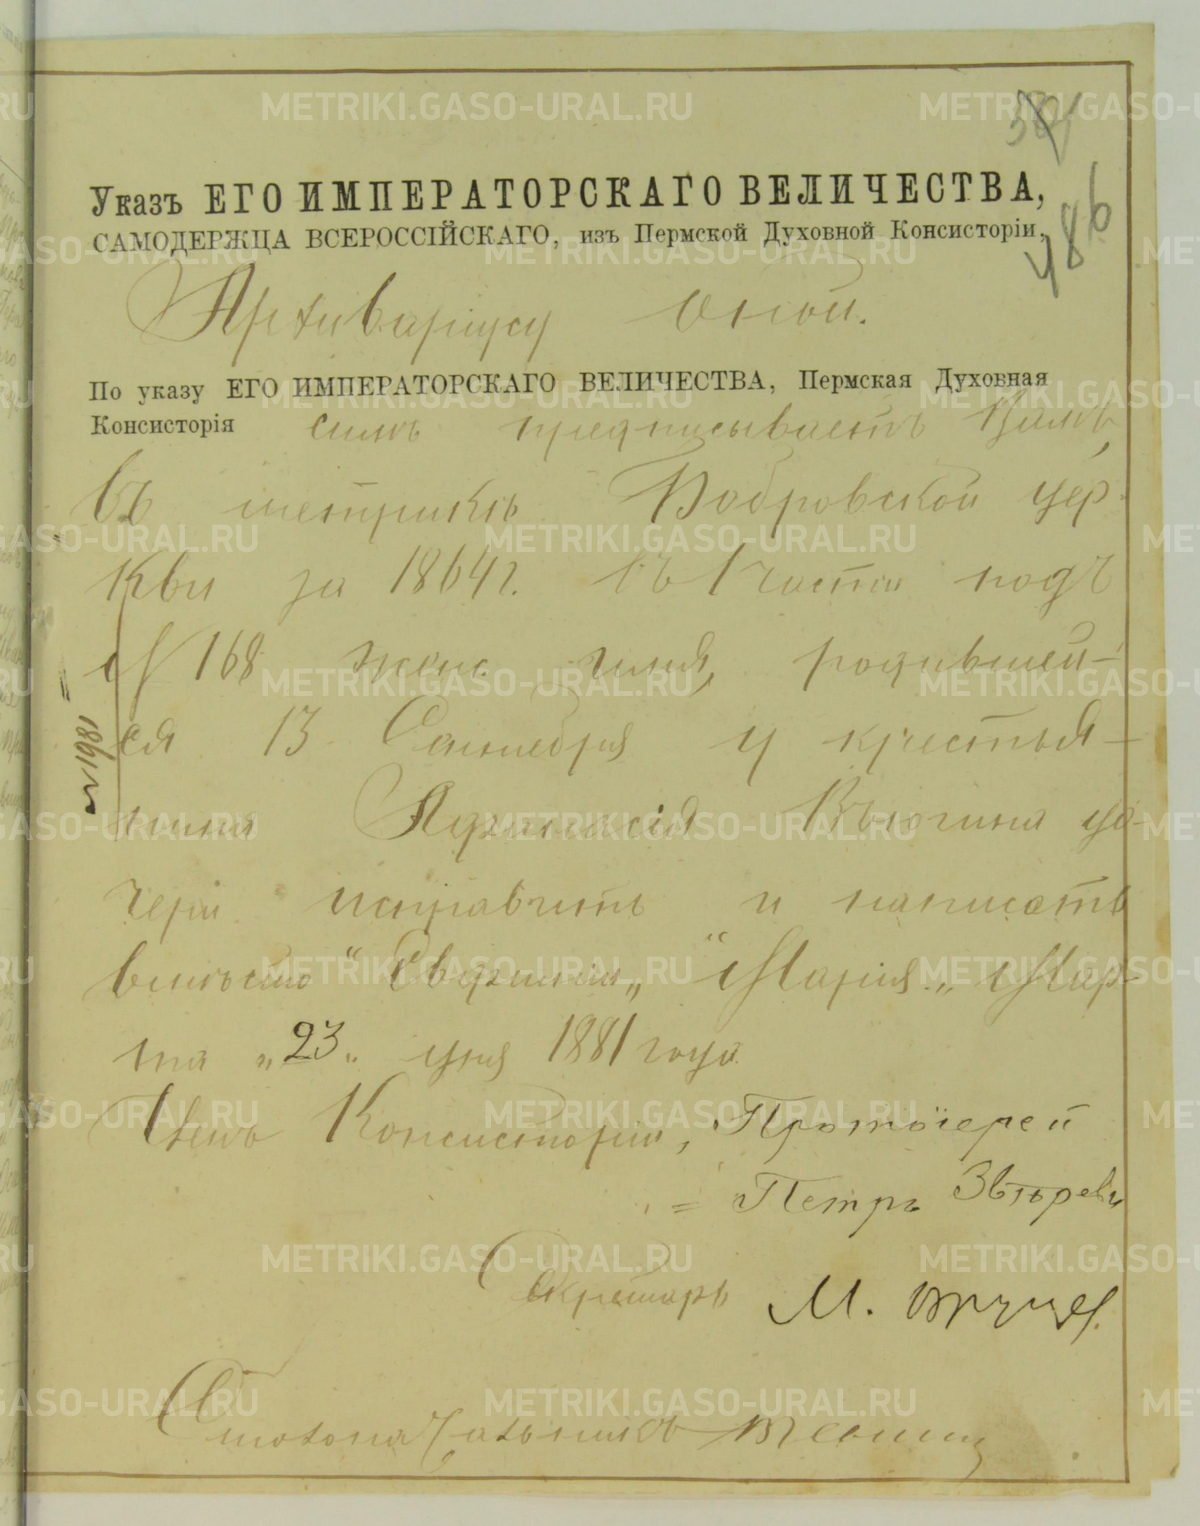 486
Указъ ЕГО ИМПЕРАТОРСКАГО ВЕЛИЧЕСТВА,
САМОДЕРЖЦА ВСЕРОССІЙСКАГО, изъ Пермской Духовной Консисторіи,
Архиваріусу оной.
По указу ЕГО ИМПЕРАТОРСКАГО ВЕЛИЧЕСТВА, Пермская Духовная
Консисторія симъ предписываетъ Вамъ,
въ метрикѣ Бобровской цер-
кви за 1864 г. въ 1 части подъ
№ 168 женс. пола, родившей-
ся 13 Сентября у крестья-
нина Аѳанасія Вьюгина до-
чери исправить и написать
вмѣсто "Евдокіи" "Марія". Мар-
та "23" дня 1881 года.
Членъ Консисторіи, Протоіерей
Петръ Звѣревъ
Секретарь М.
Столоначальникъ
№ 1981
METRIKI.GASO-URAL.RU